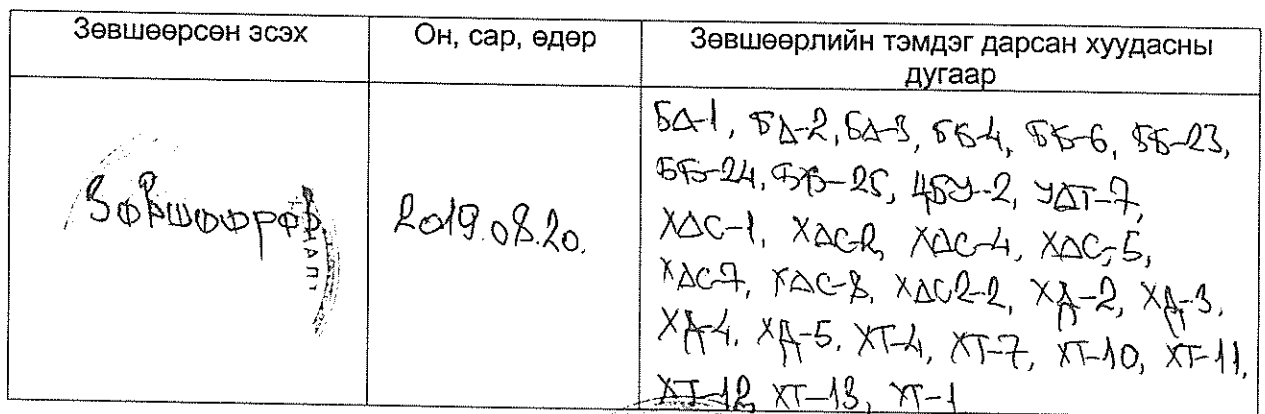 Зөвшөөрсөн эсэх
Он, сар, өдөр
Зөвшөөрлийн тэмдэг дарсан хуудасны
дугаар
Зөвшөөрөв
2019.08.20.
БД-1, БД-2, БД-3, ББ-4, ББ-6, ББ-23,
ББ-24, ББ-25, ЦБУ-2, УДТ-7,
ХДС-1, ХДС-2, ХДС-4, ХДС-5,
ХДС-7, ХДС-8, ХДС2-2, ХД-2, ХД-3,
ХД-4, ХД-5, ХТ-4, ХТ-7, ХТ-10, ХТ-11,
ХТ-12, ХТ-13, УТ-1